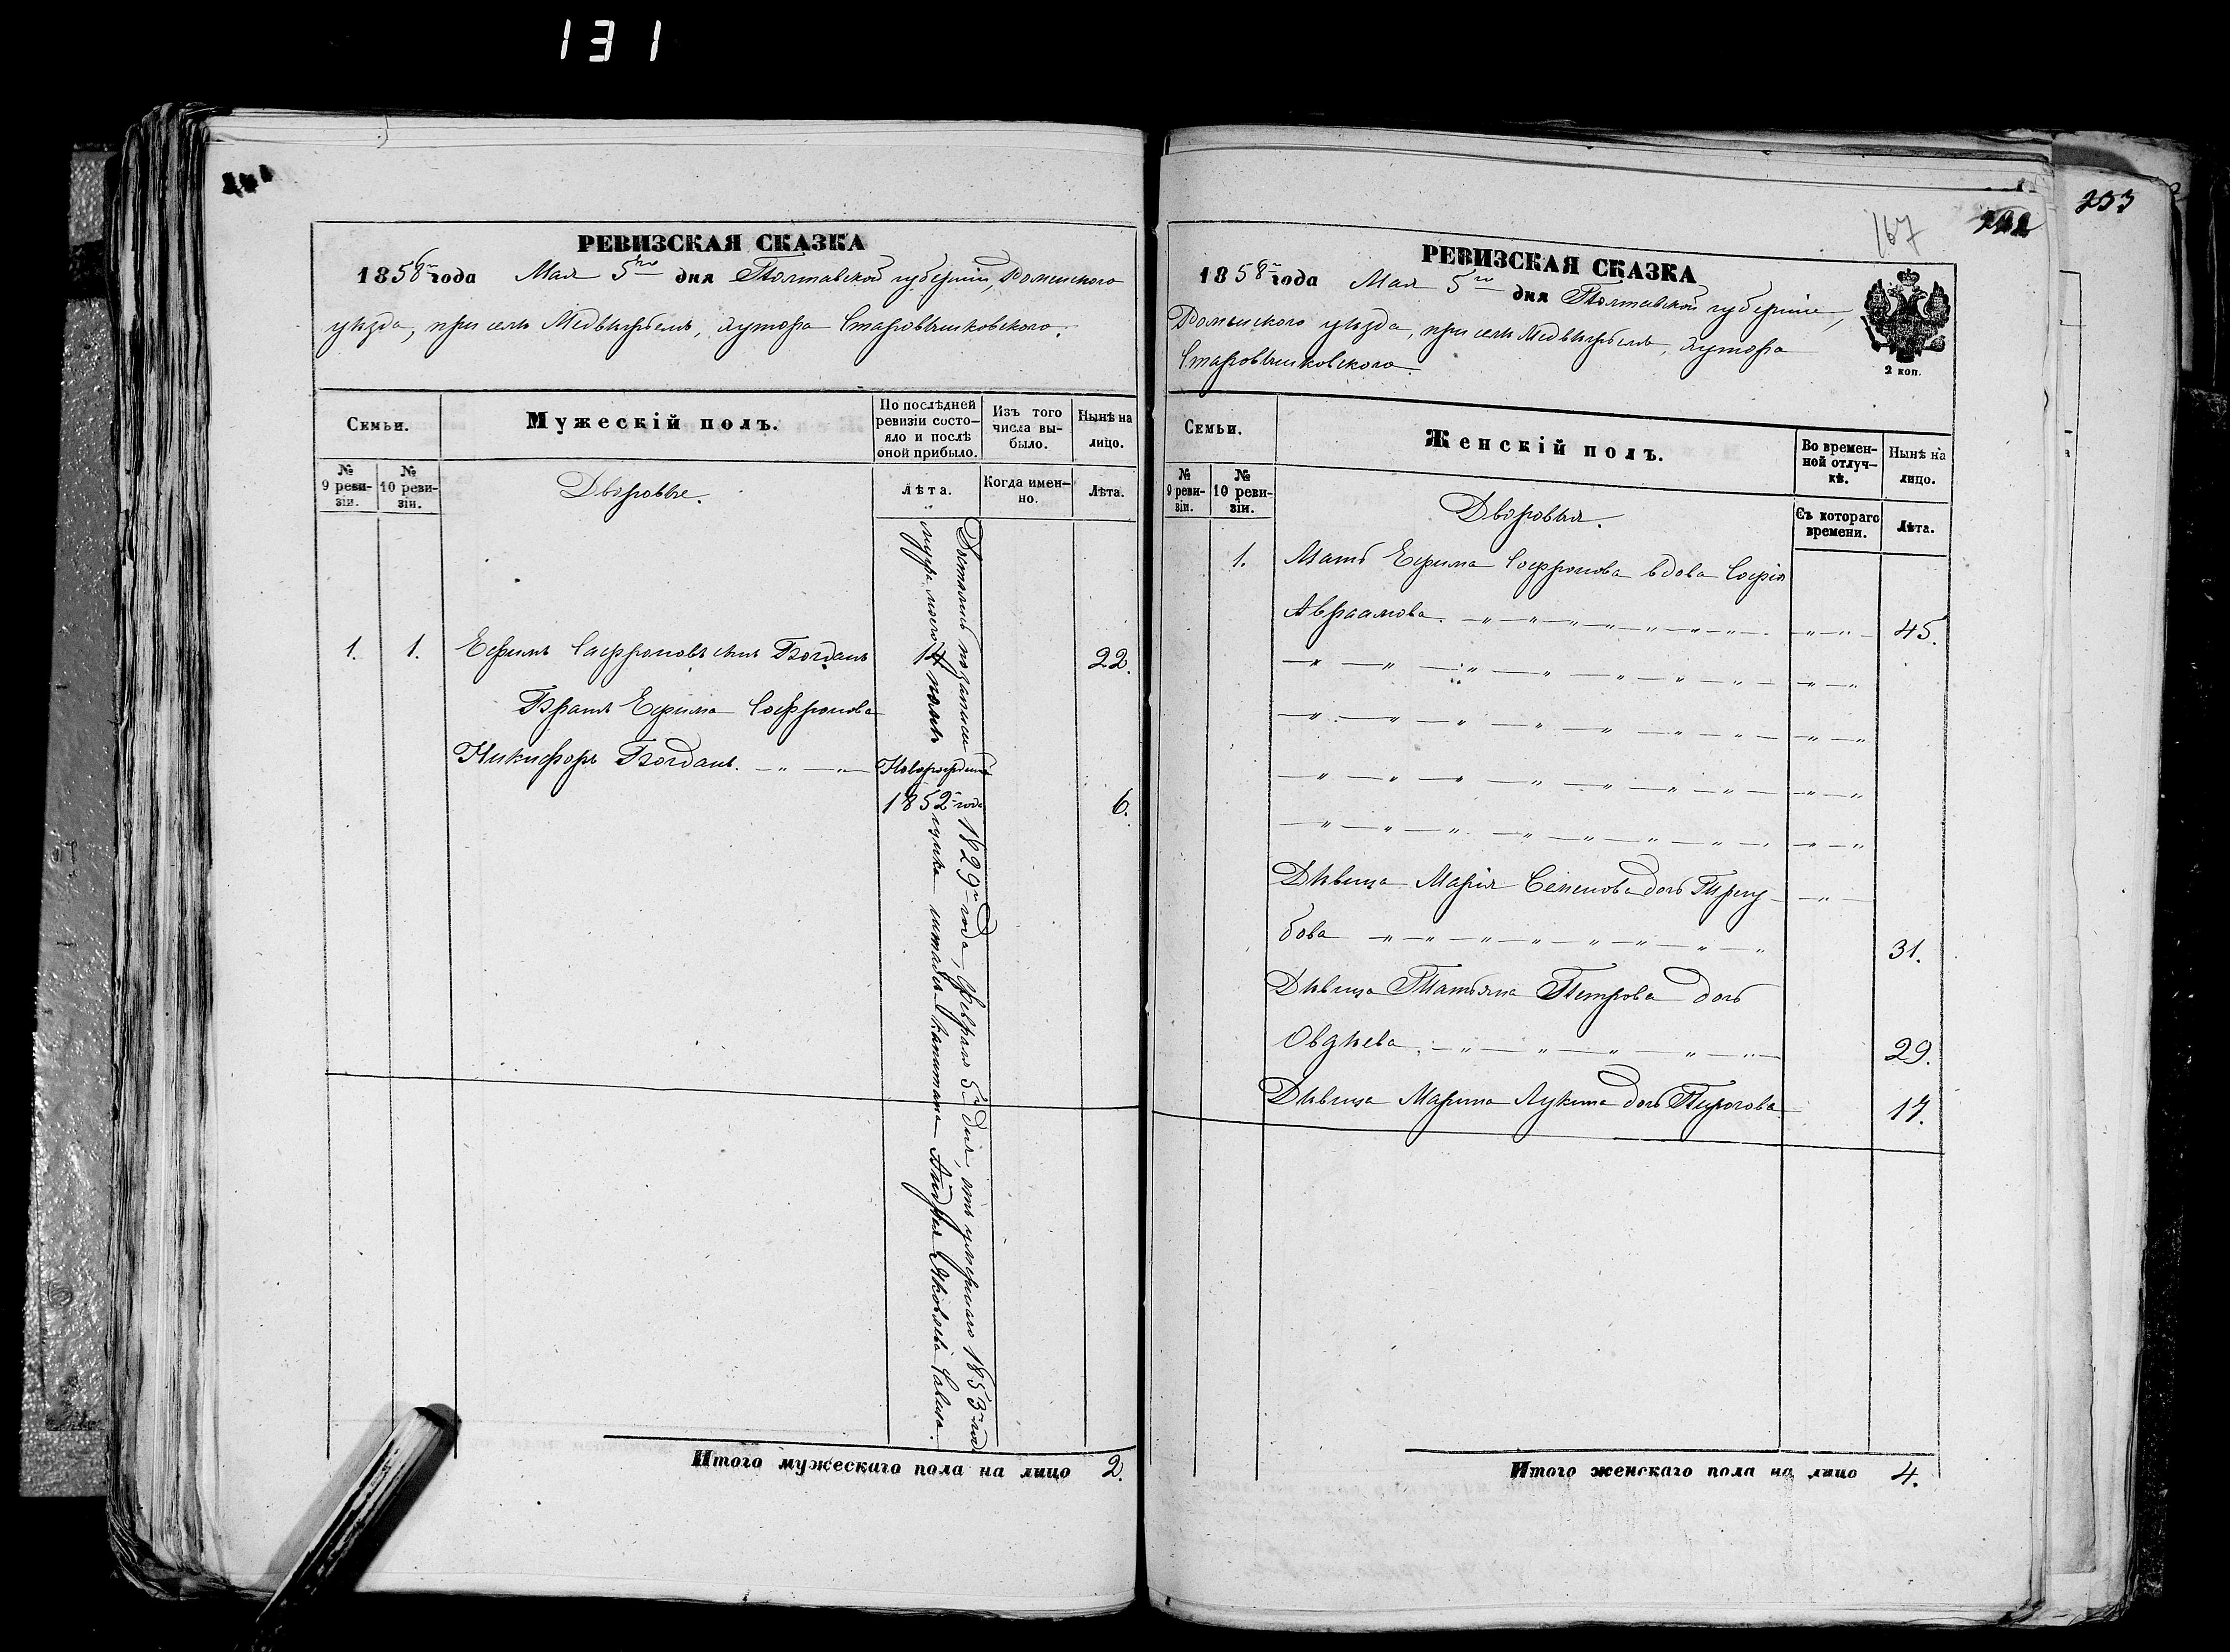 131
РЕВИЗСКАЯ СКАЗКА
1858го года Мая 5го дня Полтавской губерніи, Роменскаго
уѣзда, при селѣ Медвѣжьемъ, хутора Старовѣшковскаго.
Семьи.
Мужескій полъ.
По послѣдней ревизіи состо-
яло и послѣ оной прибыло.
Изъ того числа вы-
было.
Нынѣ на лицо.
№ 9 реви-
зіи.
№ 10 реви-
зіи.
Дворовые.
Лѣта.
Когда имен-
но.
Лѣта.
1. 1. Ефимъ Сафроновъ сынъ Богдань 22.
Братъ Ефима Софронова
Никифоръ Богдань. Новорожденъ
1852го года 6.
Достались по записи 1829го года, Февраля 5го дня, отъ умершаго 1853го года
мужа моего, полка штабсъ капитана Андрея Яковлева
Итого мужескаго пола на лицо 2.
167
253
РЕВИЗСКАЯ СКАЗКА
1858го года Мая 5го дня Полтавской губерніи,
Роменскаго уѣзда, при селѣ Медвѣжьемъ, хутора
Старовѣшковскаго.
2 коп.
Семьи.
Женскій полъ.
Во времен-
ной отлуч-
кѣ.
Нынѣ на лицо.
№ 9 реви-
зіи.
№ 10 реви-
зіи.
Дворовыя.
Съ котораго времени.
Лѣта.
1. Мать Ефима Софронова вдова Софія
Авраамова. 45.
Дѣвица Марія Семенова дочь Тригу
бова 31.
Дѣвица Татьяна Петрова дочь
Овдѣева 29.
Дѣвица Марина Лукина дочь Пирогова 17.
Итого женскаго пола на лицо 4.